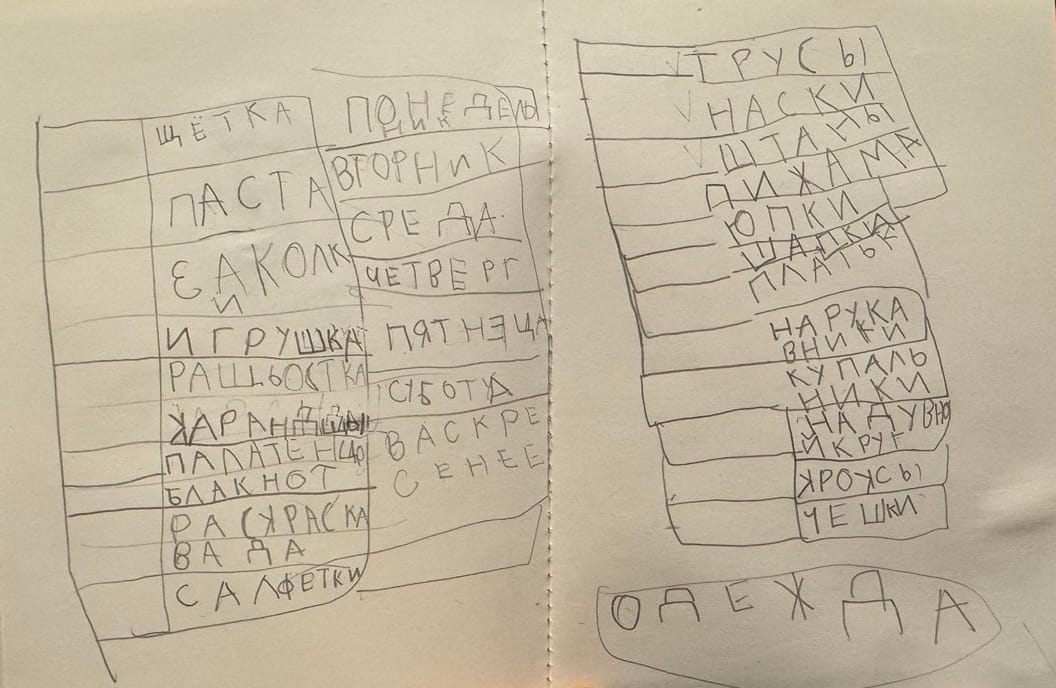 ЩЁТКА
ПАСТА
ЗАКОЛК
И
ИГРУШКА
РАЩЬОСТКА
КАРАНДДШЫ
ПАЛАТЕНЦО
БЛАКНОТ
РАСКРАСКА
ВАДА
САЛФЕТКИ
ПОНЕДЕЛЬ
НИК
ВТОРНИК
СРЕДА
ЧЕТВЕРГ
ПЯТНЭЦА
СУБОТА
ВАСКРЕ
СЕНЕЕ
ТРУСЫ
НАСКИ
ШТАНЫ
ПИЖАМА
ЮПКИ
ШАПКА
ПЛАТЬЯ
НАРУКА
ВНИКИ
КУПАЛЬ
НИКИ
НАДУВНО
Й КРУГ
КРОКСЫ
ЧЕШКИ
ОДЕЖДА